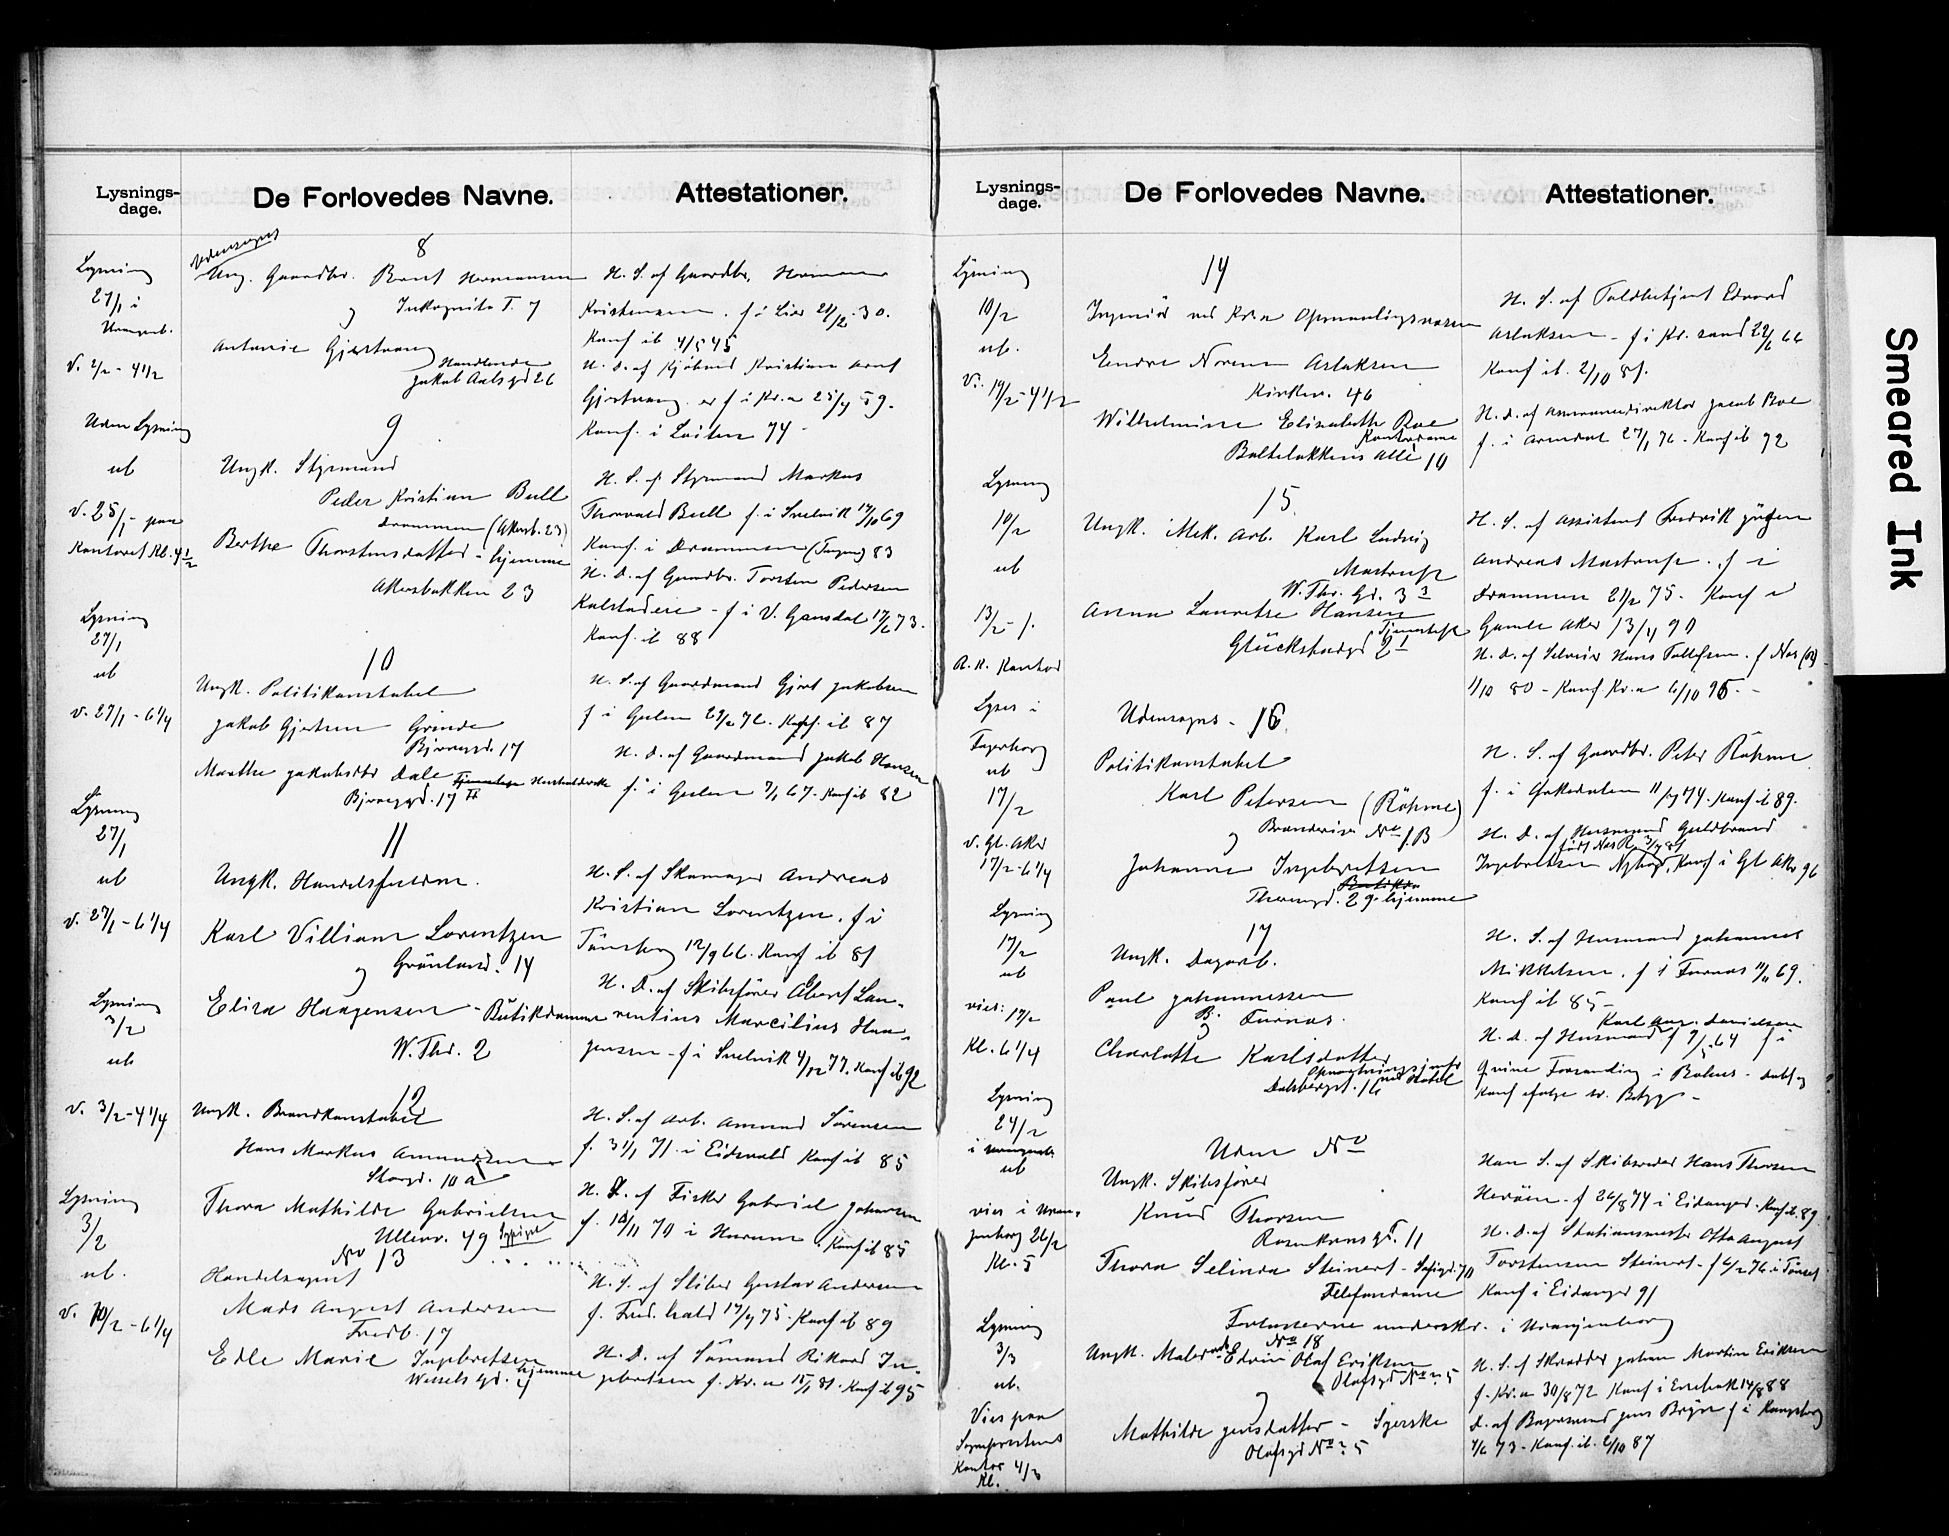 Lysnings-
dage.
De Forlovedes Navne.
Attestationer.
Lysning
27/1 i
V. 2/2 - 4 1/2
Udensogns
8
Ung. Gaardbr. Bent Hermansen
og Inkognito T. 7
Antonie Gjertrang
Handlende
Jakob Aalsgd 26
H. S. af Gaardbr. Herman
Kristensen. f i Lier 21/12 30.
Konf ib 4/5 45
H. D. af Kjøbmd Kristian Arnt
Gjertrang er f i Kr.a 25/4 59.
Konf. i Løiten 74
Uden Lysning
ub
v. 25/1 - paa
Kontoret Kl. 4 1/2
9
Ungk. Styrmand
Peder Kristian Bull
Drammen (Akersb. 23)
Berthe Thorstensdatter - hjemme
Akersbakken 23
H. S. af Styrmand Markus
Thorvald Bull f. i Svelvik 17/10 69
Konf. i Drammen 83
H. D. af Gaardbr. Torsten Pedersen
f i V. Gausdal 17/6 73.
Konf. ib 88
Lysning
27/1
ub
v. 27/1 - 6 1/4
10
Ungk. Politikonstabel
Jakob Gjertsen Grinde
Bjerregd. 17
Marthe Jakobsdtr Dale
Bjerregd. 17 II
H. S. af Gaardmand Gjert Jakobsen
f i Gulen 29/2 72. Konf. ib 87
H. D. af Gaardmand Jakob Hansen
f. i Gulen 7/1 67. Konf ib 82
Lysning
27/1
ub
v. 27/1 - 6 1/4
11
Ungk. Handelsfuldm.
Karl Villiam Lorentzen
og Grønland. 14
Elisa Haagensen - Butikdamme
W. Thr. 2
H. S. af Skomager Andreas
Kristian Lorentzen. f i
Tønsberg 12/9 66. Konf ib 81
H. D. af Skibsfører Albert Lau-
rentius Marcilius Haa-
gensen - f i Svelvik 4/12 77. Konf ib 92
Lysning
3/2
ub
v. 3/2 - 4 1/4
12
Ungk. Brandkonstabel
Hans Markus Amundsen
Skovgd. 10 a
Thora Mathilde Gabrielsen
Ullerv. 49 Sypige
H. S. af Arb. Amund Sørensen
f. 31/1 71. i Eidsvold Konf ib 85
H. D. af Fisker Gabriel Johansen
f. 10/11 70 i Hurum. Konf ib 85
Lysning
3/2
ub.
v. 10/2 - 6 1/4
No 13
Handelsagent
Mads August Andersen
Fredb. 17
Edle Marie Ingebretsen
hjemme
Wessels gd. 4
H. S. af Sliber Gustav Andersen
f. Fred. hald 17/4 75. Konf ib 89
H. D. af Sømand Rikard In-
gebretsen f. Kr.a 15/1 81. Konf ib 95
Lysnings-
dage.
De Forlovedes Navne.
Attestationer.
Lysning
10/2
ub.
V. 19/2 - 4 1/2
14
Ingeniør ved Kr.a Opmaalingsvæsen
Endre Norem Aslaksen
Kirkev. 46
Wilhelmine Elisabeth Boe
Kontordame
Balteløkkens Allé 10
H. S. af Toldbetjent Edvard
Aslaksen - f i Kr. sand 22/6 66
Konf ib. 2/10 81.
H. D. af Assurancedirektør Jacob Boe
f. i Arendal 27/1 76 - Konf ib 92
Lysning
10/2
ub
13/2 - 1.
A. K. Kontor
15.
Ungk. Mek. Arb. Karl Ludvig
Mastrup
W. Thr. Gd. 3 3
Anna Lauretse Hansen
Glückstadgd 2 1
H. S. af Assistent Fredrik Jürgen
Andreas Mastrup. f i
Drammen 21/2 75. Konf i
Gamle Aker 13/4 90
1/10 80 - Konf Kr.a 6/10 95.
Lyses i
Fagerborg
ub
17/2
v. Gl. Aker
17/2 - 6 1/4
Udensogns - 16
Politikonstabel
Karl Petersen (Röhme)
og No 1 B
Johanne Ingebretsen
Theresegd. 29. hjemme
H. S. af Gaardbr. Peter Röhme
f. i 11/4 74. Konf ib 89.
H. D. af Husmand Guldbrand
født Nes R. 3/4 81
Ingebretsen Nyhus, Konf i Gl Aker 96
Lysning
17/2
ub
vies: 17/2
Kl. 6 1/4
17
Ungk. Dagarb.
Paul Johannessen
B. Furnæs.
og
Charlotte Karlsdatter
Dalsbergst. 16
H. S. af Husmand Johannes
Mikkelsen. f i Furnæs 11/11 69.
Konf ib 85 -
Karl Aug. Danielson
H. D. af Husmand f 9/5 64 f i
Konf ifølge sv. Betyg -
Lysning
24/2
ub
vies i Uran-
ienborg 26/2
Kl. 5
Uden No
Ungk. Skibsfører
Knud Thorsen
Rosenkransgt. 11
Thora Selinda Steinert - Sofigd. 70
Telefondame
Forloverne underskr. i Uranienborg
Han S. af Skibsreder Hans Thorsen
Herøen - f 26/8 74 i Eidanger. Konf ib 89
H. D. af Stationsmester Otto August
Torstensen Steinert - f 6/2 76 i Tönset
Konf i Eidanger 91
Lysning
3/3
ub.
Vies paa
Sognepræstens
Kontor 4/3
Kl.
No 18
Ungk. Maler Edvin Olaf Eriksen
Olafsgd No 25
og
Mathilde Jensdatter - Syerske
Olafsgd No 25
H. S. af Skrædder Johan Martin Eriksen
f. Kr.a 30/8 72 Konf i Enebak 14/8 88
f i Kongsberg
4/6 73 - Konf. ib. 2/10 87
Smeared Ink